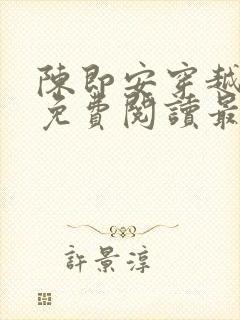 陳即安穿越
免費閱讀最
許景淳